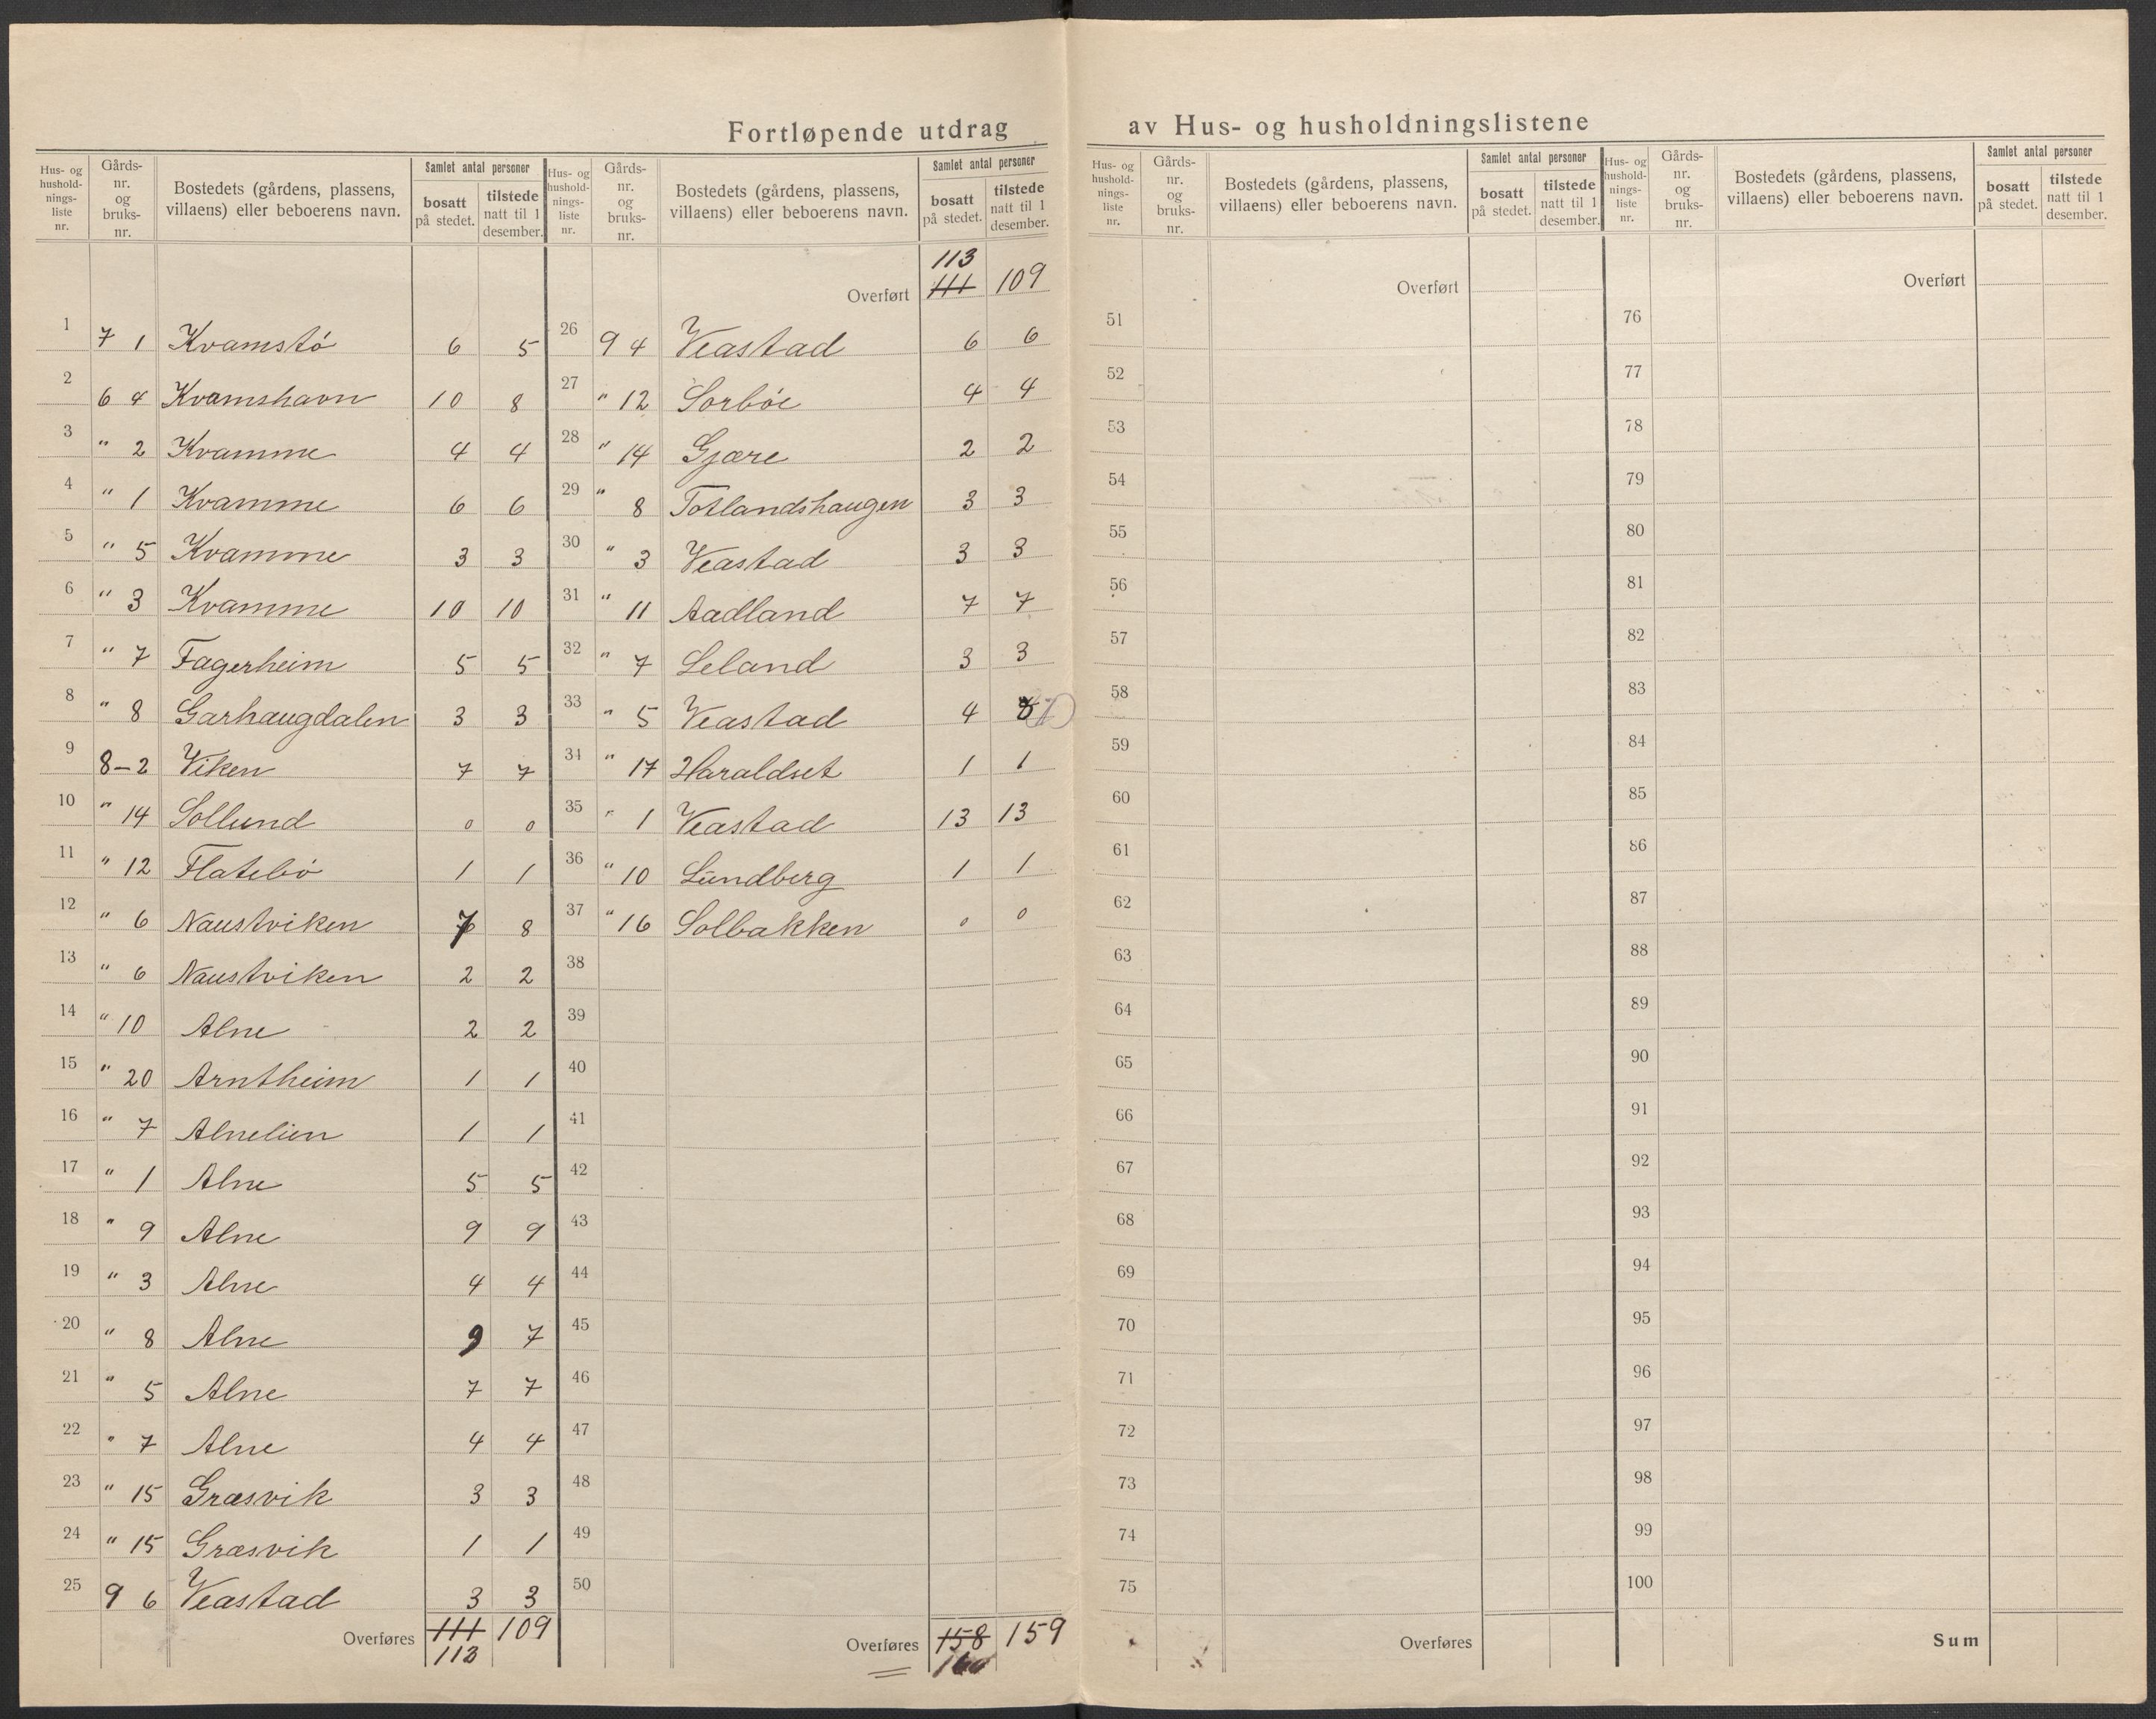 Fortløpende utdrag av Hus- og husholdningslistene
Hus- og hushold-nings-liste nr. | Gårds-nr. og bruks-nr. | Bostedets (gårdens, plassens, villaens) eller beboerens navn. | Samlet antal personer | bosatt på stedet. | tilstede natt til 1 desember.
1 7 1 Kvamstø 6 5
2 6 4 Kvamshavn 10 8
3 " 2 Kvamme 4 4
4 " 1 Kvamme 6 6
5 " 5 Kvamme 3 3
6 " 3 Kvamme 10 10
7 " 7 Fagerheim 5 5
8 " 8 Garhaugdalen 3 3
9 8-2 Viken 7 7
10 " 14 Sollund 0 0
11 " 12 Flatebø 1 1
12 " 6 Naustviken 8
13 " 6 Naustviken 2 2
14 " 10 Alne 2 2
15 " 20 Arntheim 1 1
16 " 7 Alnelien 1 1
17 " 1 Alne 5 5
18 " 9 Alne 9 9
19 " 3 Alne 4 4
20 " 8 Alne 9 7
21 " 5 Alne 7 7
22 " 7 Alne 4 4
23 " 15 Græsvik 3 3
24 " 15 Græsvik 1 1
25 9 6 Veastad 3 3
Overføres 111 109
113
Hus- og hushold-nings-liste nr. | Gårds-nr. og bruks-nr. | Bostedets (gårdens, plassens, villaens) eller beboerens navn. | Samlet antal personer | bosatt på stedet. | tilstede natt til 1 desember.
113
Overført 111 109
26 9 4 Veastad 6 6
27 " 12 Sorbøe 4 4
28 " 14 Gjære 2 2
29 " 8 Totlandshaugen 3 3
30 " 3 Veastad 3 3
31 " 11 Aadland 7 7
32 " 7 Leland 3 3
33 " 5 Veastad 4
34 " 17 Haraldset 1 1
35 " 1 Veastad 13 13
36 " 10 Lundberg 1 1
37 " 16 Solbakken 0 0
38
39
40
41
42
43
44
45
46
47
48
49
50
Overføres 158 159
160
Hus- og hushold-nings-liste nr. | Gårds-nr. og bruks-nr. | Bostedets (gårdens, plassens, villaens) eller beboerens navn. | Samlet antal personer | bosatt på stedet. | tilstede natt til 1 desember.
Overført
51
52
53
54
55
56
57
58
59
60
61
62
63
64
65
66
67
68
69
70
71
72
73
74
75
Overføres
Hus- og hushold-nings-liste nr. | Gårds-nr. og bruks-nr. | Bostedets (gårdens, plassens, villaens) eller beboerens navn. | Samlet antal personer | bosatt på stedet. | tilstede natt til 1 desember.
Overført
76
77
78
79
80
81
82
83
84
85
86
87
88
89
90
91
92
93
94
95
96
97
98
99
100
Sum